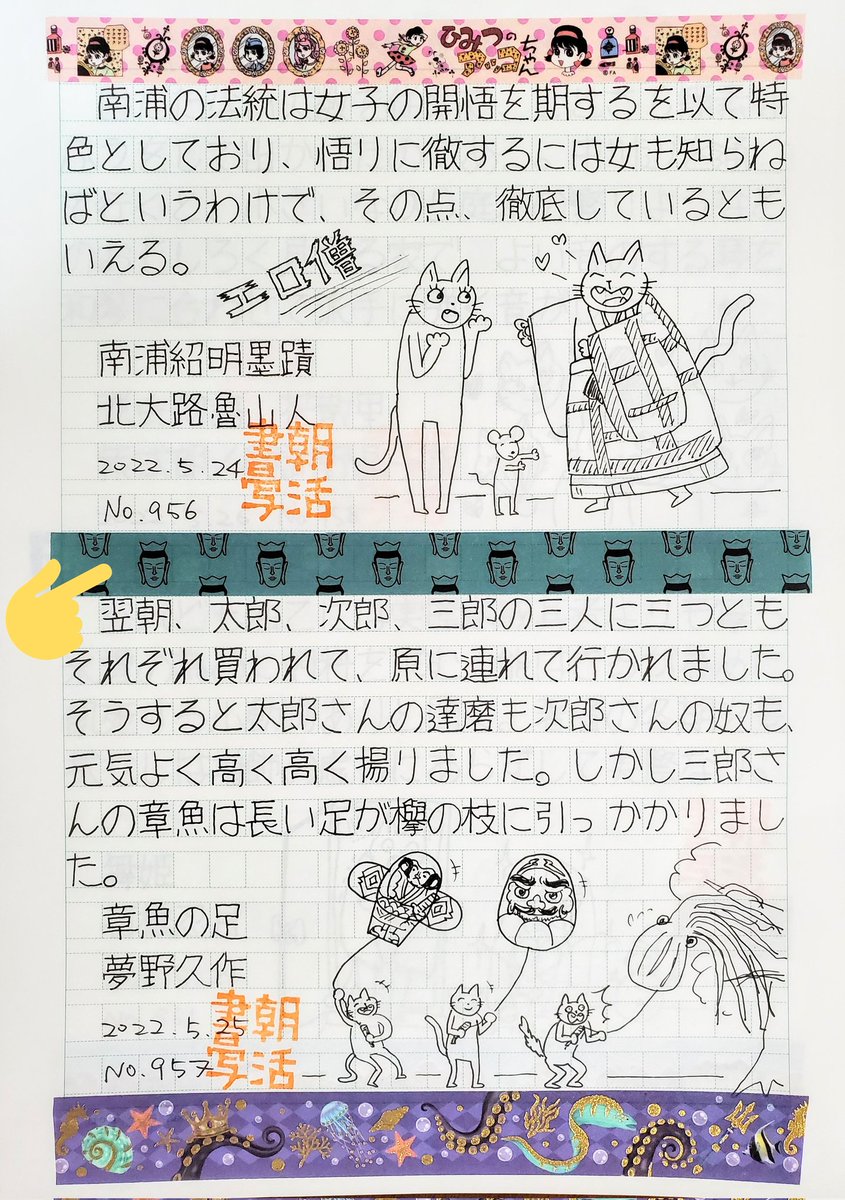 ひみつのアッコちゃん
南浦の法統は女子の開悟を期するを以て特
色としており、悟りに徹するには女も知らね
ばというわけで、その点、徹底しているとも
いえる。
エロ僧
南浦紹明墨蹟
北大路魯山人
2022.5.24
No.956
朝活書写
翌朝、太郎、次郎、三郎の三人に三つとも
それぞれ買われて、原に連れて行かれました。
そうすると太郎さんの達磨も次郎さんの奴も、
元気よく高く高く揚りました。しかし三郎さ
んの章魚は長い足が欅の枝に引っかかりまし
た。
章魚の足
夢野久作
2022.5.25
No.957
朝活書写